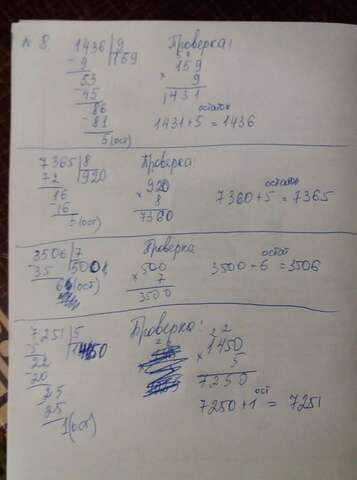 № 8. 1436 | 9 Проверка:
- 9 | 159 159
53 × 9
- 45 1431
86 остаток
- 81 1431+5 = 1436
5 (ост)
7365 | 8 Проверка:
72 | 920 920 остаток
16 × 8 7360+5 = 7365
- 16 7360
5 (ост)
3506 | 7 Проверка остат
- 35 | 500 500 3500+6 = 3506
6 (ост) × 7
3500
7251 | 5 Проверка: 2 2
- 5 | 1450 1450
22 × 5
- 20 7250
25 ост
- 25 7250+1 = 7251
1 (ост)